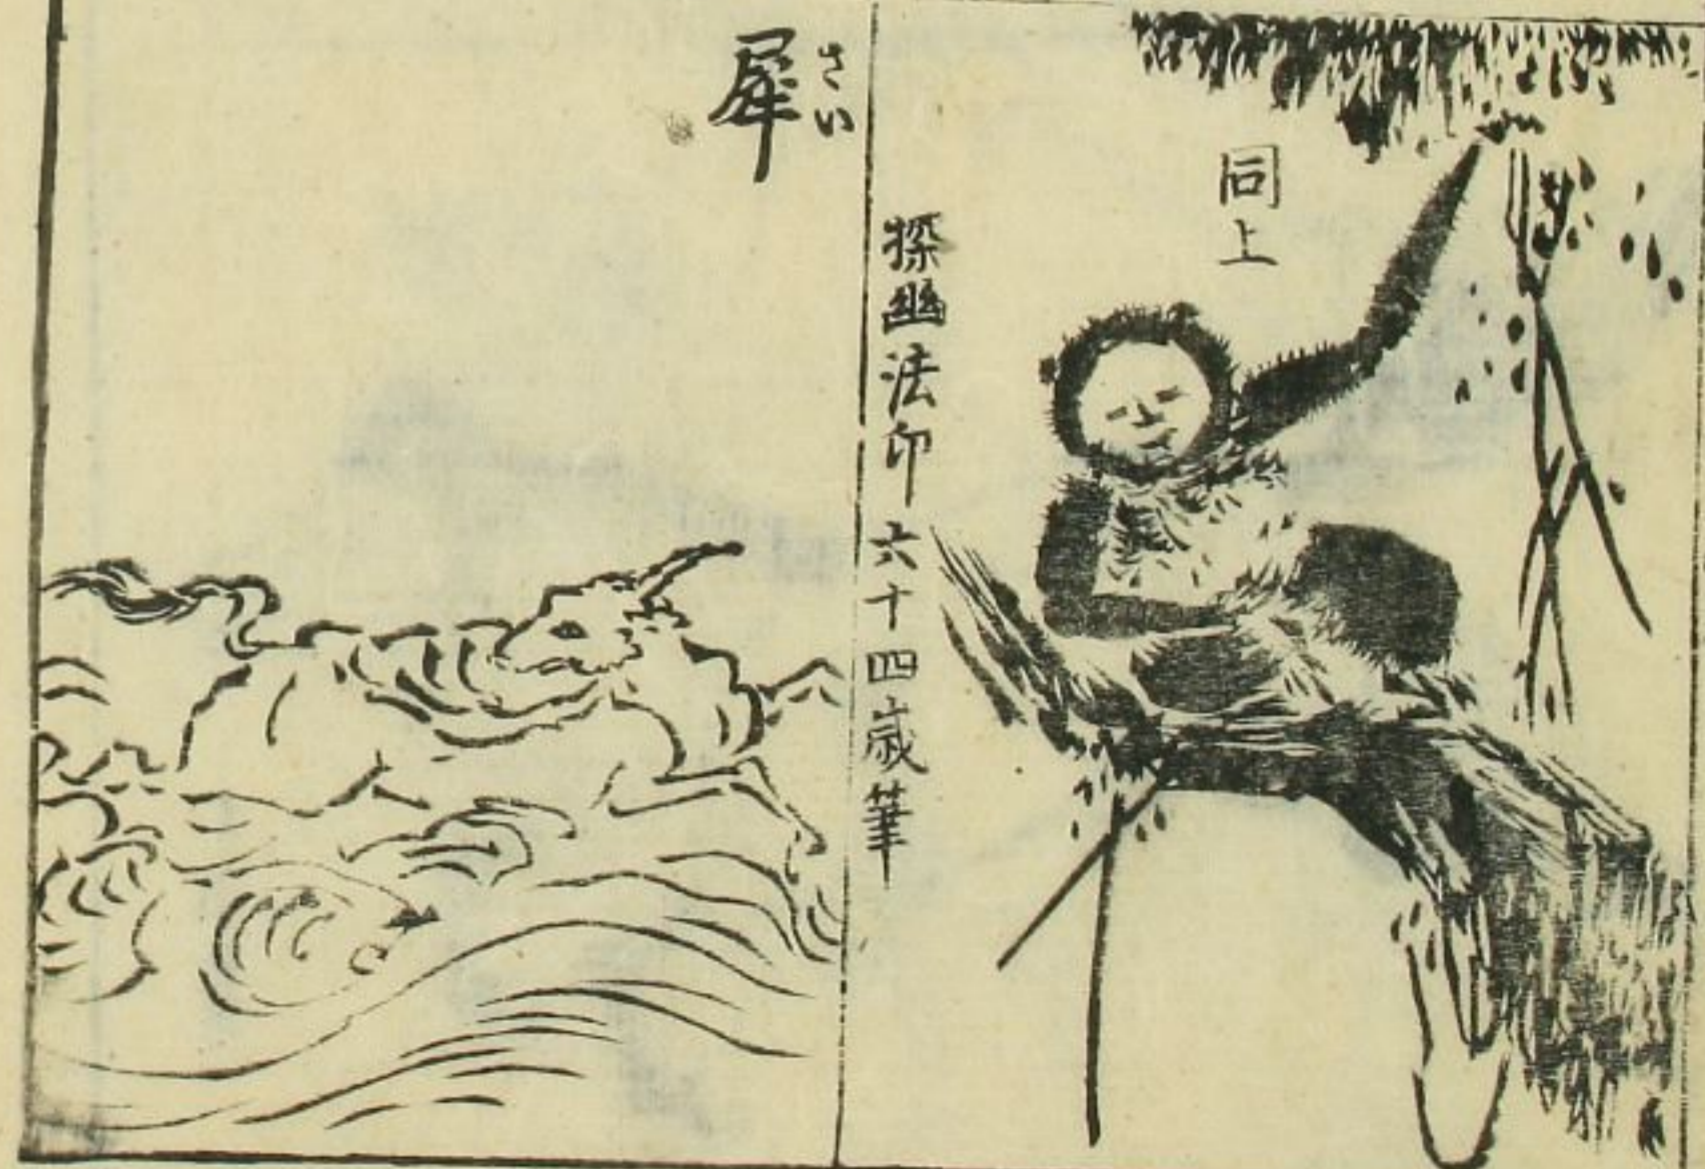 同上
探幽法印六十四歳筆
犀
さい